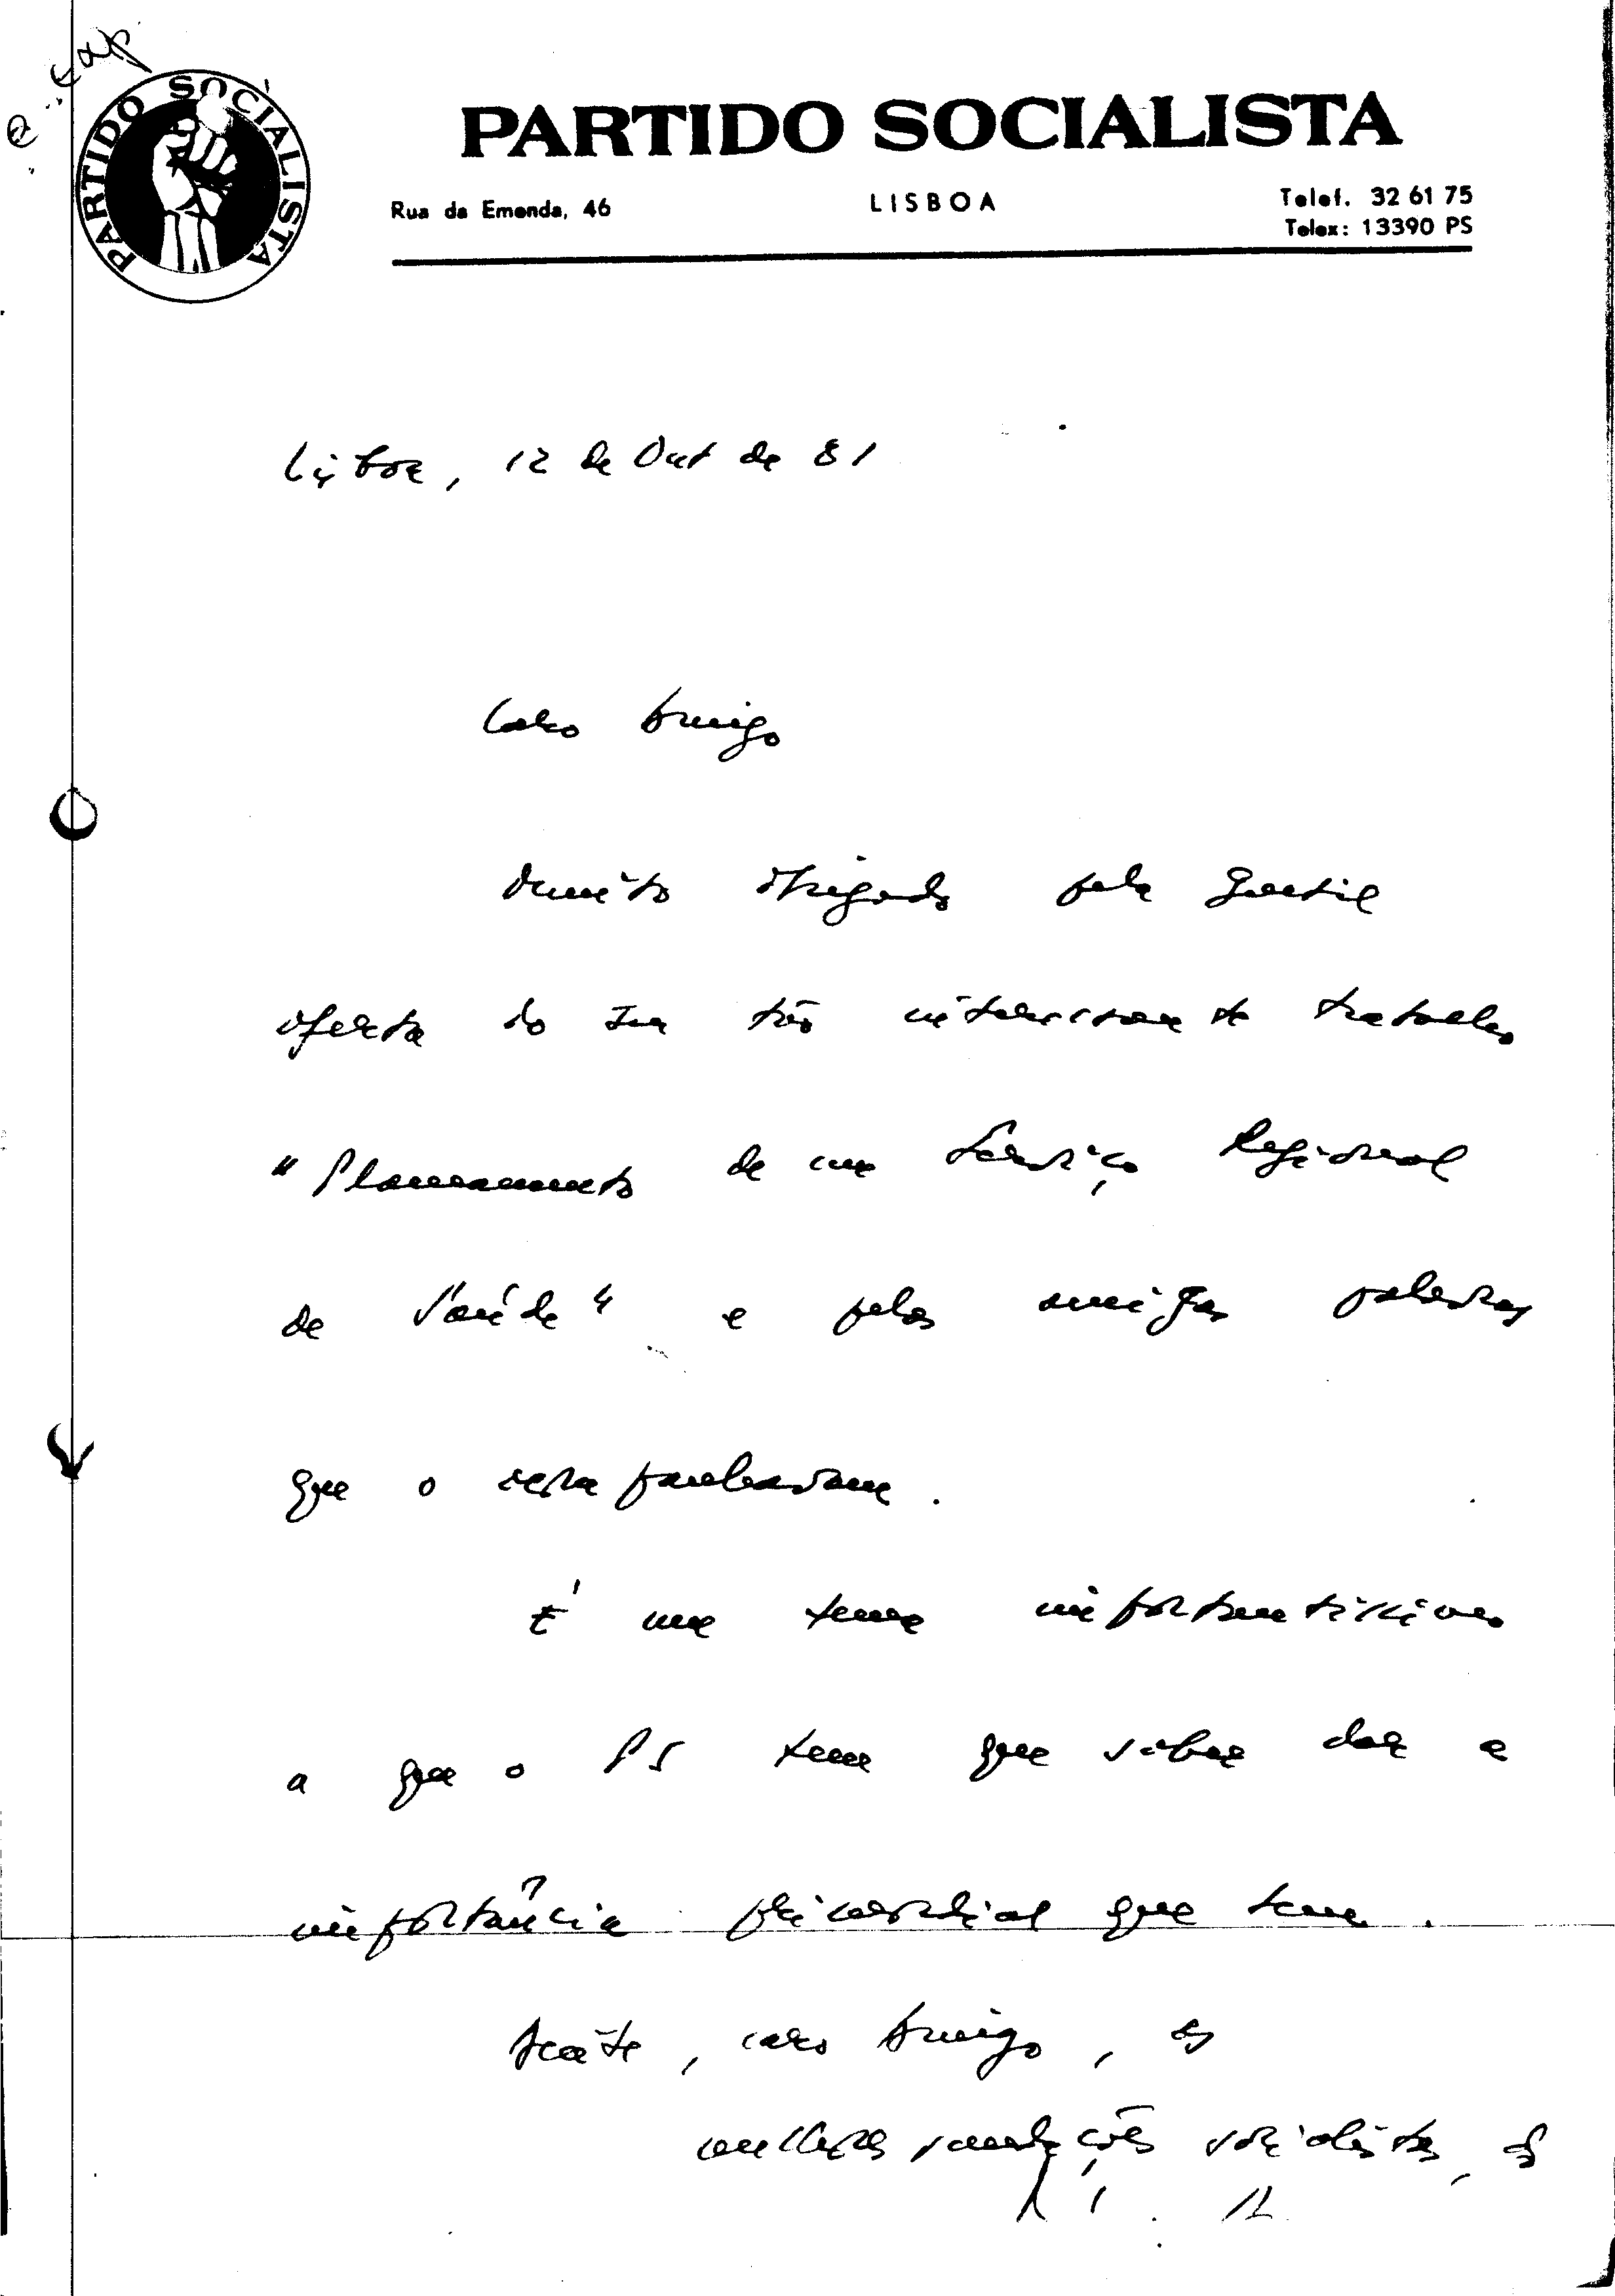 PARTIDO SOCIALISTA
PARTIDO SOCIALISTA
Rua da Emenda, 46
LISBOA
Telef. 32 61 75
Telex: 13390 PS
Lisboa, 12 de Out de 81
Caro Amigo
Muito obrigado pela gentil
oferta do seu tão interessante trabalho
"Planeamento de um Serviço Regional
de Saúde" e pelas amigas palavras
que o acompanhavam.
É um tema importantíssimo
a que o PS tem que saber dar a
importância primordial que tem.
Aceite, caro Amigo, as
melhores saudações socialistas, do